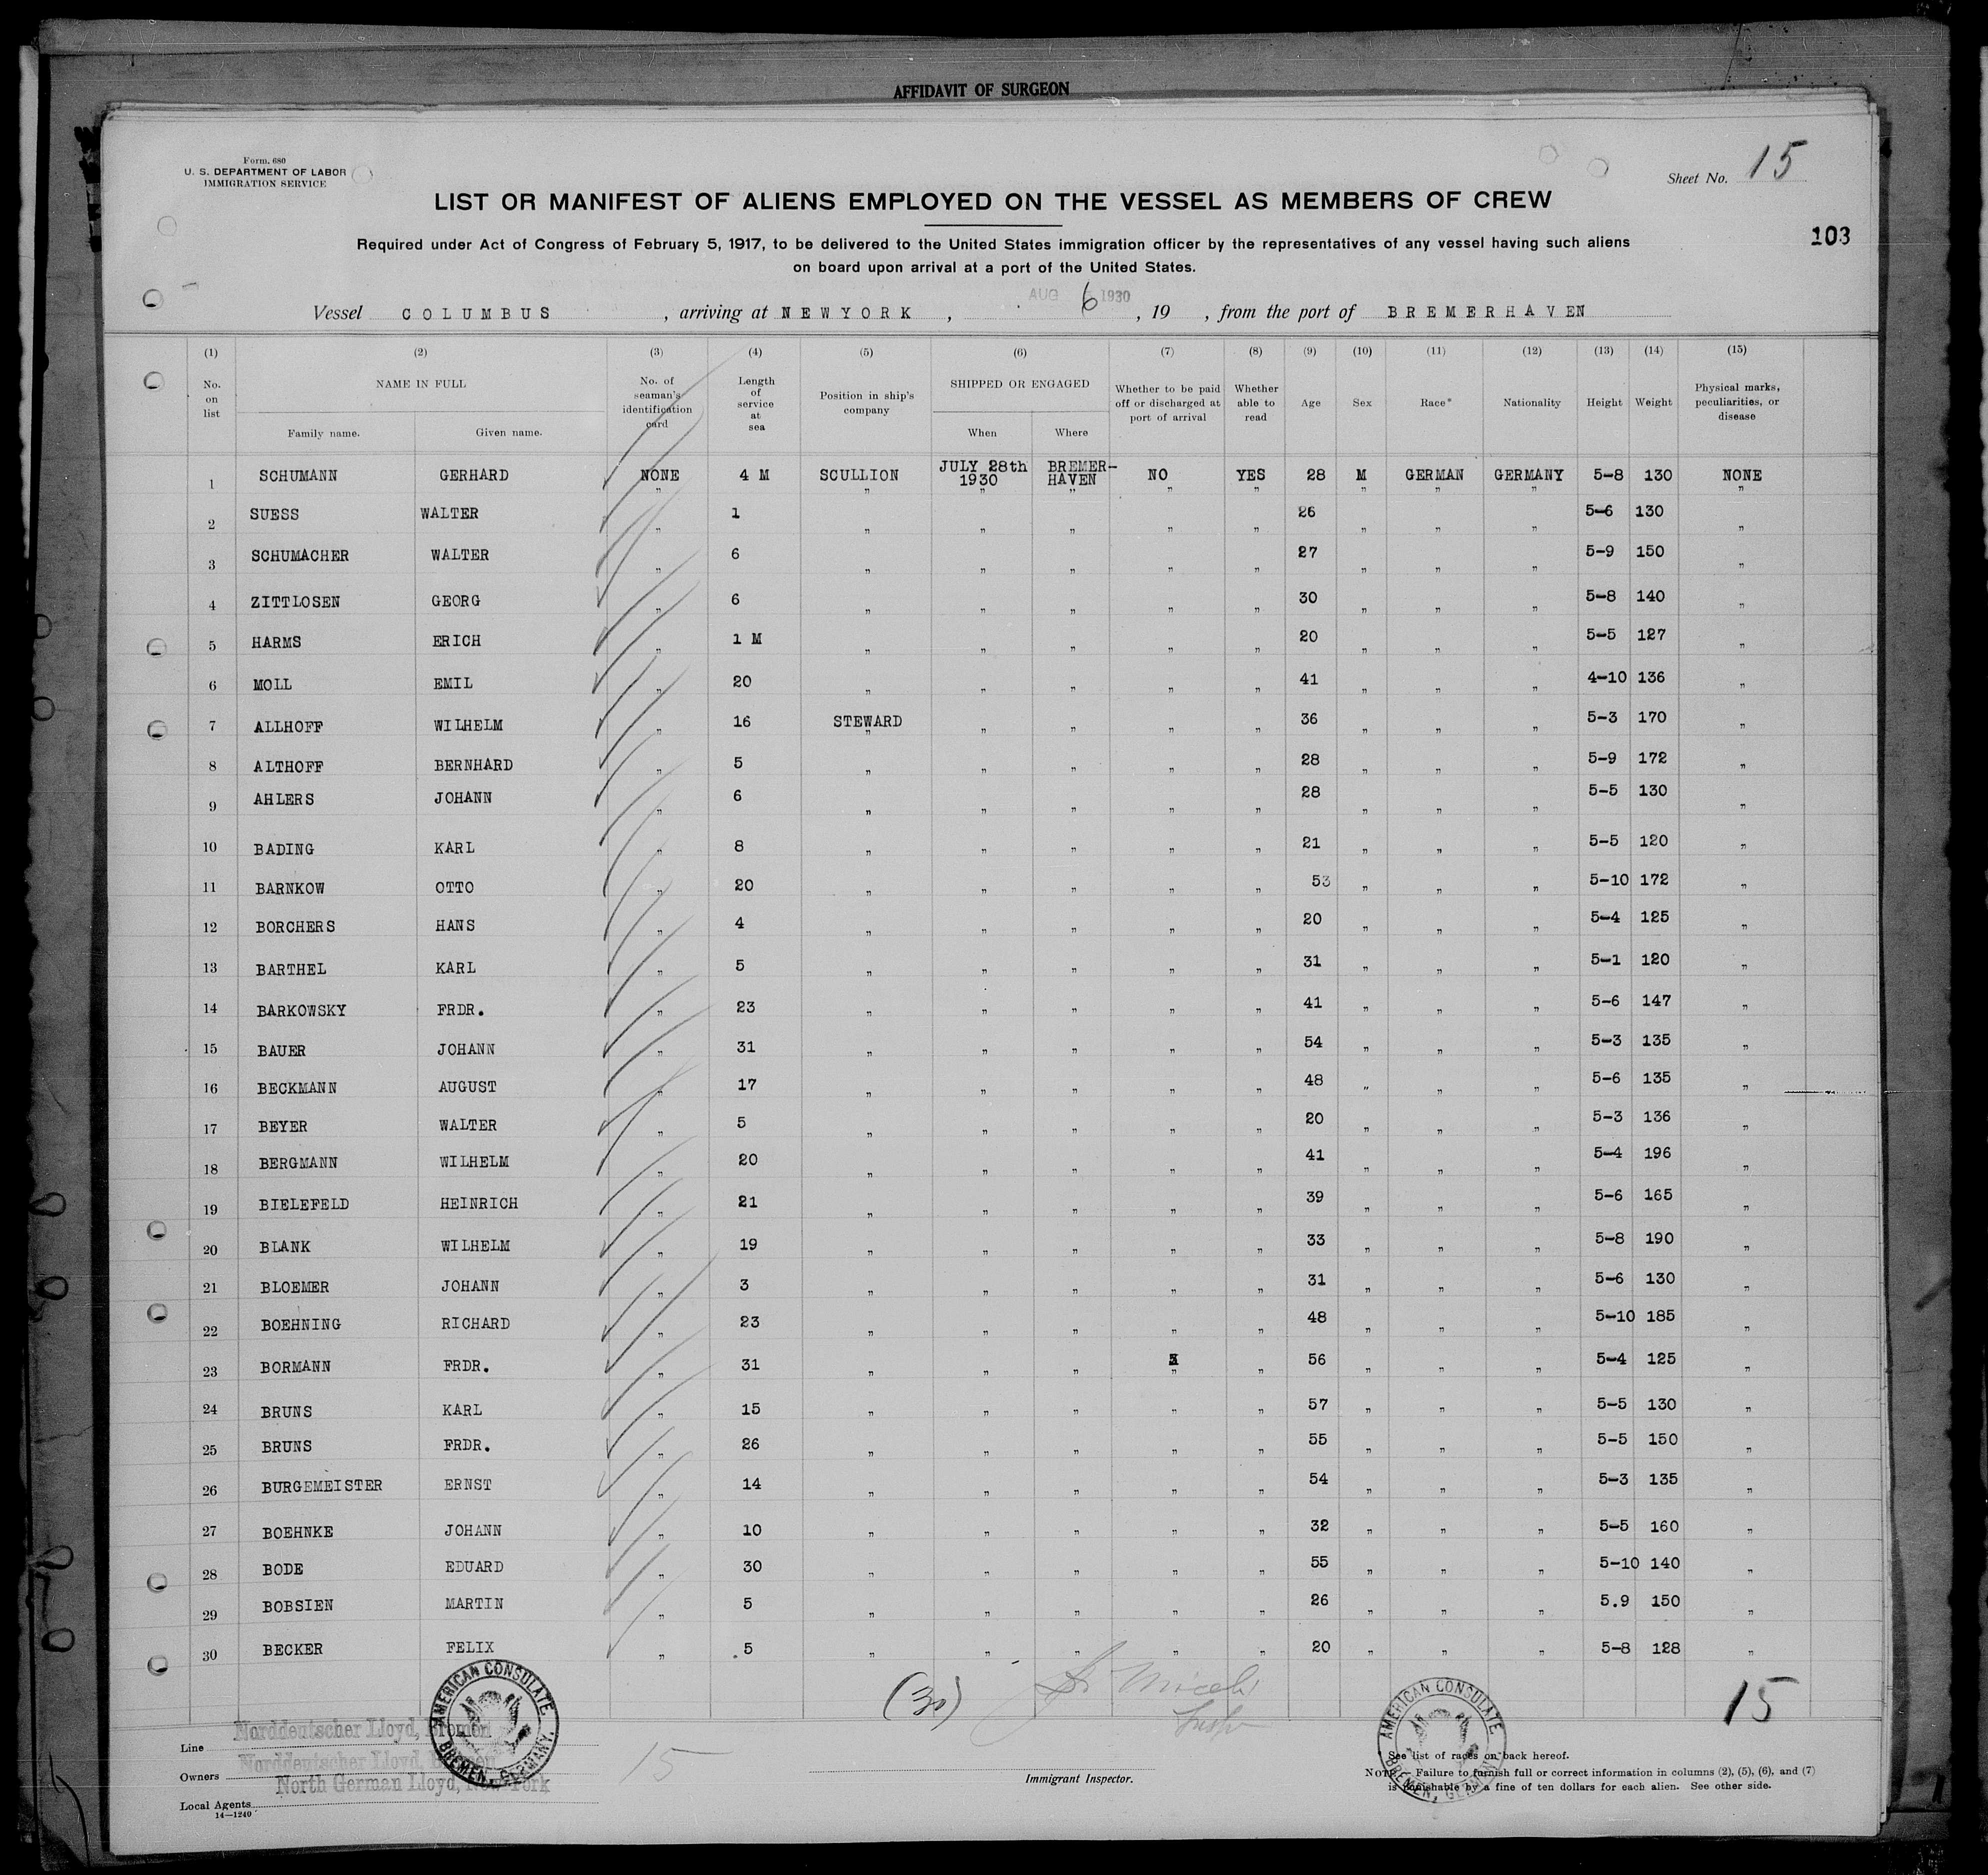 AFFIDAVIT OF SURGEON
Form. 680
U. S. DEPARTMENT OF LABOR
IMMIGRATION SERVICE
Sheet No. 15
LIST OR MANIFEST OF ALIENS EMPLOYED ON THE VESSEL AS MEMBERS OF CREW
103
Required under Act of Congress of February 5, 1917, to be delivered to the United States immigration officer by the representatives of any vessel having such aliens
on board upon arrival at a port of the United States.
AUG 6 1930
Vessel COLUMBUS , arriving at NEWYORK , , 19 , from the port of BREMERHAVEN
(1) (2) (3) (4) (5) (6) (7) (8) (9) (10) (11) (12) (13) (14) (15)
No. on list NAME IN FULL Family name. Given name. No. of seaman's identification card Length of service at sea Position in ship's company SHIPPED OR ENGAGED When Where Whether to be paid off or discharged at port of arrival Whether able to read Age Sex Race* Nationality Height Weight Physical marks, peculiarities, or disease
1 SCHUMANN GERHARD NONE 4 M SCULLION JULY 28th 1930 BREMER-HAVEN NO YES 28 M GERMAN GERMANY 5-8 130 NONE
2 SUESS WALTER " 1 " " " " " 26 " " " 5-6 130 "
3 SCHUMACHER WALTER " 6 " " " " " 27 " " " 5-9 150 "
4 ZITTLOSEN GEORG " 6 " " " " " 30 " " " 5-8 140 "
5 HARMS ERICH " 1 M " " " " " 20 " " " 5-5 127 "
6 MOLL EMIL " 20 " " " " " 41 " " " 4-10 136 "
7 ALLHOFF WILHELM " 16 STEWARD " " " " 36 " " " 5-3 170 "
8 ALTHOFF BERNHARD " 5 " " " " " 28 " " " 5-9 172 "
9 AHLERS JOHANN " 6 " " " " " 28 " " " 5-5 130 "
10 BADING KARL " 8 " " " " " 21 " " " 5-5 120 "
11 BARNKOW OTTO " 20 " " " " " 53 " " " 5-10 172 "
12 BORCHERS HANS " 4 " " " " " 20 " " " 5-4 125 "
13 BARTHEL KARL " 5 " " " " " 31 " " " 5-1 120 "
14 BARKOWSKY FRDR. " 23 " " " " " 41 " " " 5-6 147 "
15 BAUER JOHANN " 31 " " " " " 54 " " " 5-3 135 "
16 BECKMANN AUGUST " 17 " " " " " 48 " " " 5-6 135 "
17 BEYER WALTER " 5 " " " " " 20 " " " 5-3 136 "
18 BERGMANN WILHELM " 20 " " " " " 41 " " " 5-4 196 "
19 BIELEFELD HEINRICH " 21 " " " " " 39 " " " 5-6 165 "
20 BLANK WILHELM " 19 " " " " " 33 " " " 5-8 190 "
21 BLOEMER JOHANN " 3 " " " " " 31 " " " 5-6 130 "
22 BOEHNING RICHARD " 23 " " " " " 48 " " " 5-10 185 "
23 BORMANN FRDR. " 31 " " " " " 56 " " " 5-4 125 "
24 BRUNS KARL " 15 " " " " " 57 " " " 5-5 130 "
25 BRUNS FRDR. " 26 " " " " " 55 " " " 5-5 150 "
26 BURGEMEISTER ERNST " 14 " " " " " 54 " " " 5-3 135 "
27 BOEHNKE JOHANN " 10 " " " " " 32 " " " 5-5 160 "
28 BODE EDUARD " 30 " " " " " 55 " " " 5-10 140 "
29 BOBSIEN MARTIN " 5 " " " " " 26 " " " 5.9 150 "
30 BECKER FELIX " 5 " " " " " 20 " " " 5-8 128 "
(30)
15
AMERICAN CONSULATE BREMEN, GERMANY.
AMERICAN CONSULATE BREMEN, GERMANY.
Line Norddeutscher Lloyd, Bremen
Owners Norddeutscher Lloyd, Bremen
North German Lloyd, New York
Local Agents
14—1240
15
Immigrant Inspector.
* See list of races on back hereof.
NOTE.—Failure to furnish full or correct information in columns (2), (5), (6), and (7)
is punishable by a fine of ten dollars for each alien. See other side.